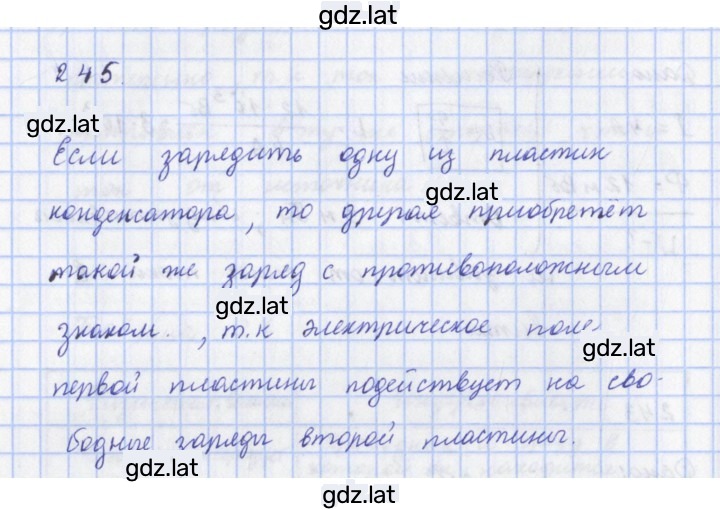 gdz.lat
245.
gdz.lat
Если зарядить одну из пластин
gdz.lat
конденсатора, то другая приобретёт
такой же заряд с противоположным
gdz.lat
знаком., т.к электрическое поле
gdz.lat
первой пластины подействует на сво-
бодные заряды второй пластины.
gdz.lat
gdz.lat